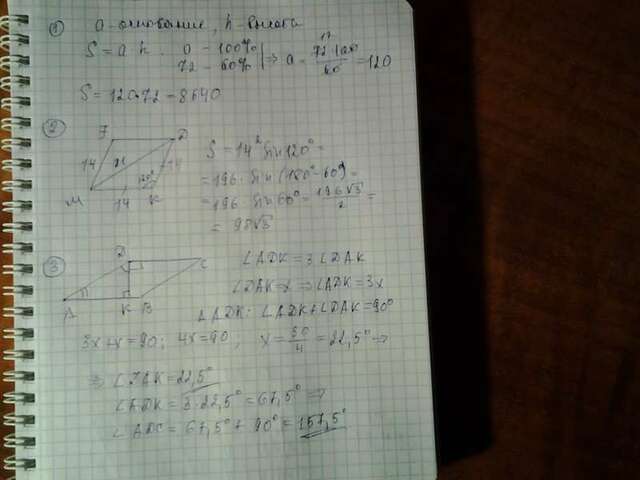 ① a - основание, h - высота
S = a h. a - 100%
72 - 60% | ⇒ a = 72·100/60 = 120
S = 120·72 = 8640
②
F D
14 14
M 14 K
120°
S = 14² sin 120° =
= 196 · sin (180° - 60°) =
= 196 · sin 60° = 196√3/2 =
= 98√3
③
D C
A K B
∠ADK = 3∠DAK
∠DAK = x ⇒ ∠ADK = 3x
△ADK: ∠ADK + ∠DAK = 90°
3x + x = 90; 4x = 90, x = 90/4 = 22,5° ⇒
⇒ ∠DAK = 22,5°
∠ADK = 3·22,5° = 67,5° ⇒
∠ADC = 67,5° + 90° = 157,5°